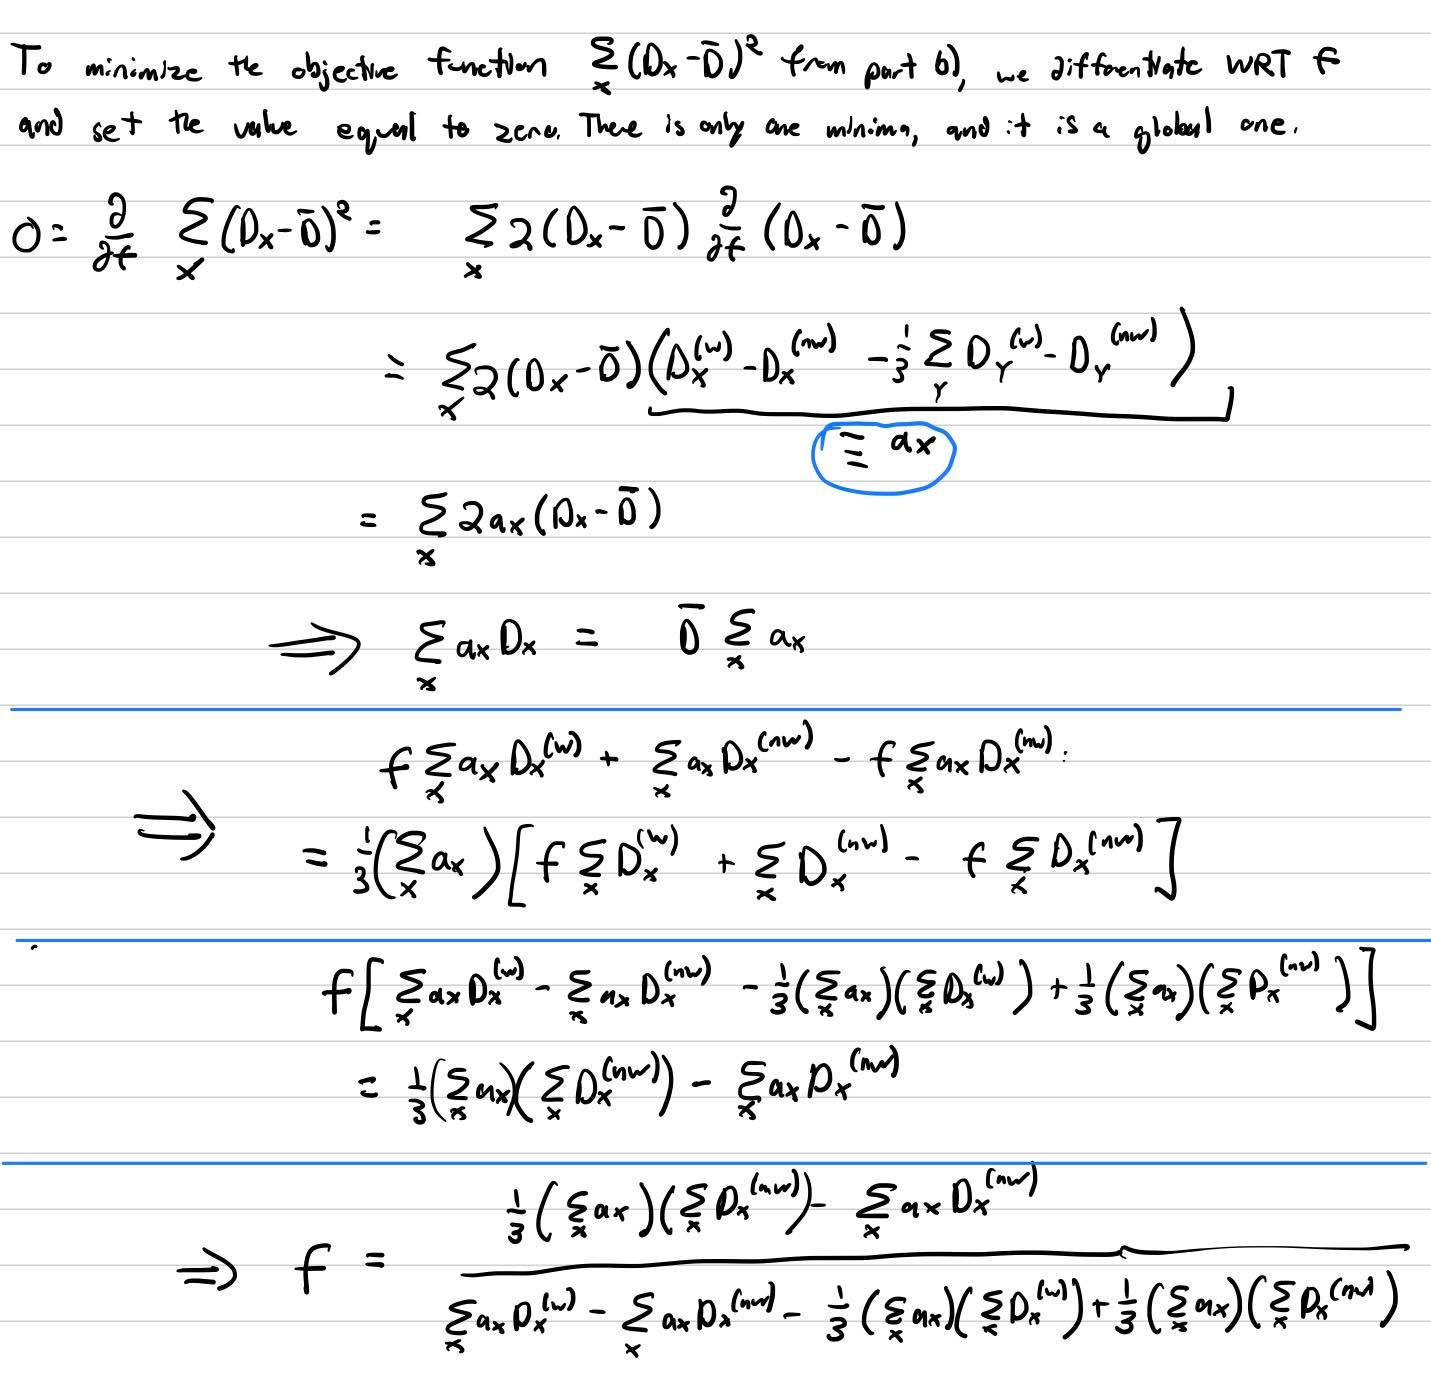 To minimize the objective function Σ_x (D_x - D̄)² from part b), we differentiate WRT f
and set the value equal to zero. There is only one minima, and it is a global one.
0 = ∂/∂f Σ_x (D_x - D̄)² = Σ_x 2(D_x - D̄) ∂/∂f (D_x - D̄)
= Σ_x 2(D_x - D̄)(D_x^(w) - D_x^(nw) - 1/3 Σ_Y D_Y^(w) - D_Y^(nw))
≡ a_x
= Σ_x 2a_x(D_x - D̄)
⟹ Σ_x a_x D_x = D̄ Σ_x a_x
f Σ_x a_x D_x^(w) + Σ_x a_x D_x^(nw) - f Σ_x a_x D_x^(nw)
⟹ = 1/3 (Σ_x a_x)[f Σ_x D_x^(w) + Σ_x D_x^(nw) - f Σ_x D_x^(nw)]
f[Σ_x a_x D_x^(w) - Σ_x a_x D_x^(nw) - 1/3 (Σ_x a_x)(Σ_x D_x^(w)) + 1/3 (Σ_x a_x)(Σ_x D_x^(nw))]
= 1/3 (Σ_x a_x)(Σ_x D_x^(nw)) - Σ_x a_x D_x^(nw)
1/3 (Σ_x a_x)(Σ_x D_x^(nw)) - Σ_x a_x D_x^(nw)
⟹ f =
Σ_x a_x D_x^(w) - Σ_x a_x D_x^(nw) - 1/3 (Σ_x a_x)(Σ_x D_x^(w)) + 1/3 (Σ_x a_x)(Σ_x D_x^(nw))